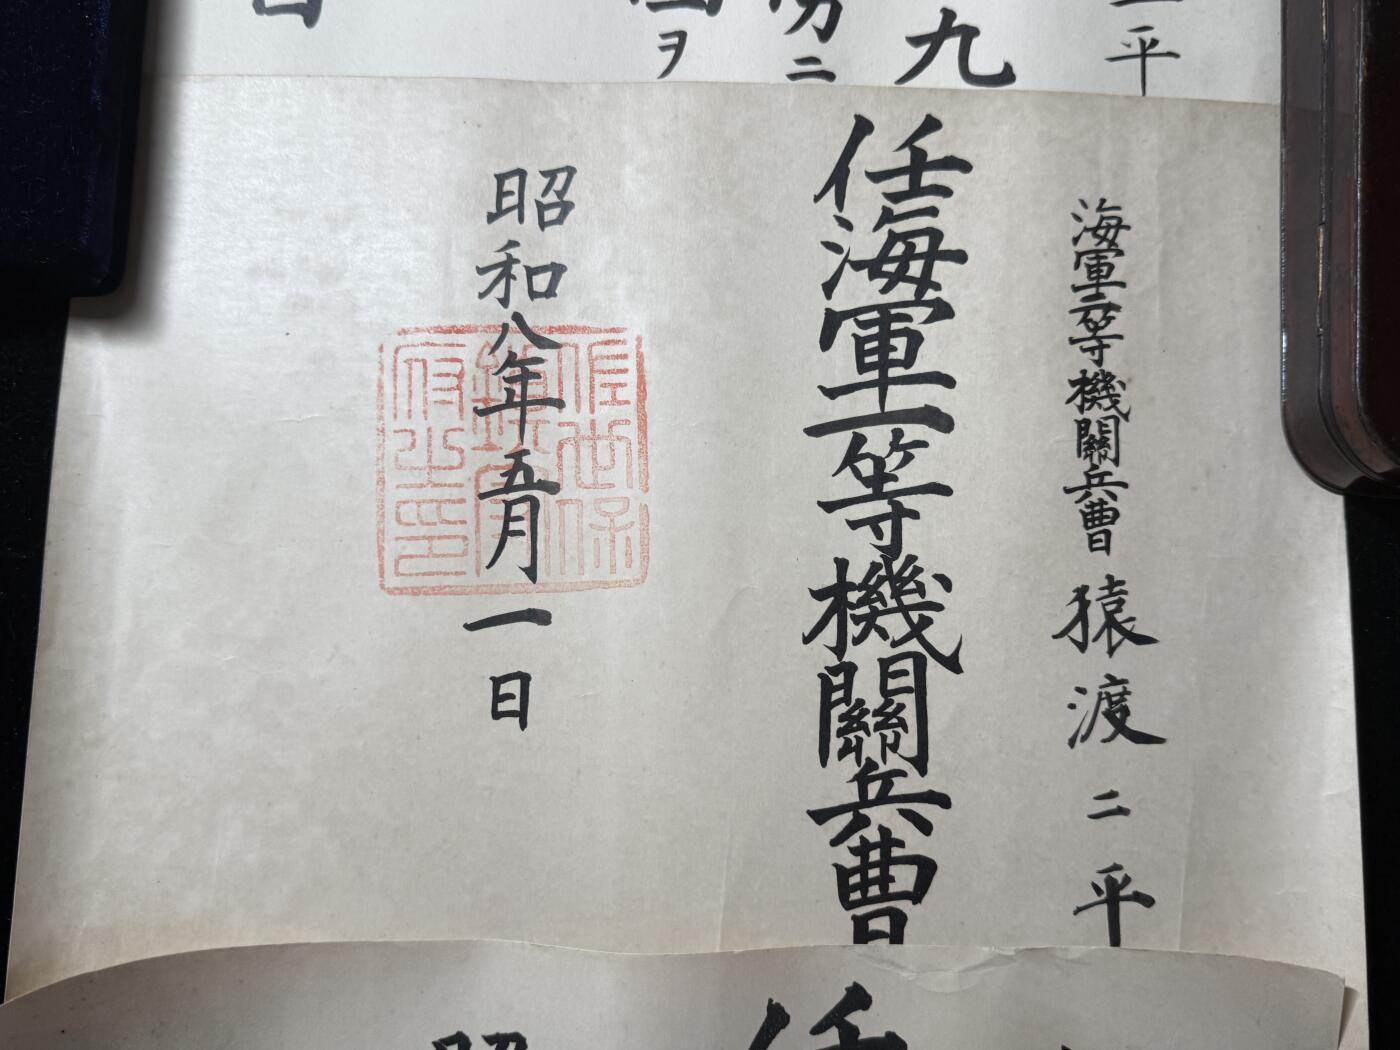 平
九
ニ
ヲ
海軍二等機關兵曹 猿渡二平
任海軍一等機關兵曹
昭和八年五月一日
佐世保
鎮守
府之印
任